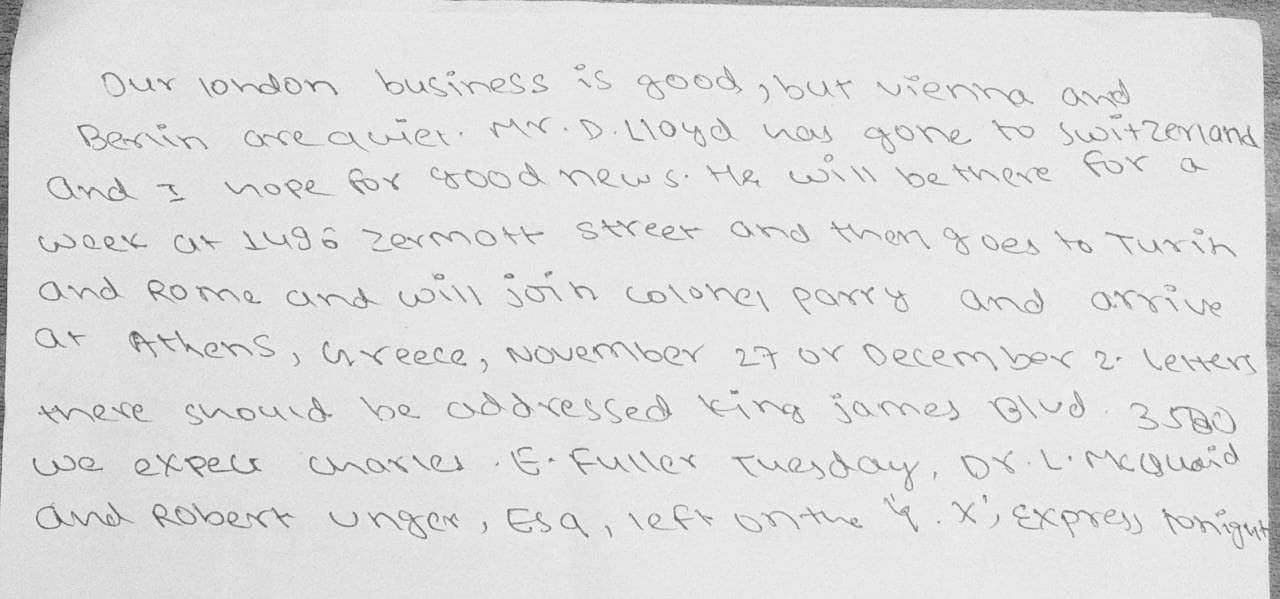 Our london business is good, but vienna and
Berlin are quiet. Mr. D. Lloyd has gone to switzerland
and I hope for good news. He will be there for a
week at 1496 zermott street and then goes to Turin
and Rome and will join colonel parry and arrive
at Athens, Greece, November 27 or December 2. letters
there should be addressed king james Blvd. 3580
we expect charles. E. Fuller Tuesday, Dr. L. McQuaid
and Robert unger, Esq, left on the . X', Express tonight